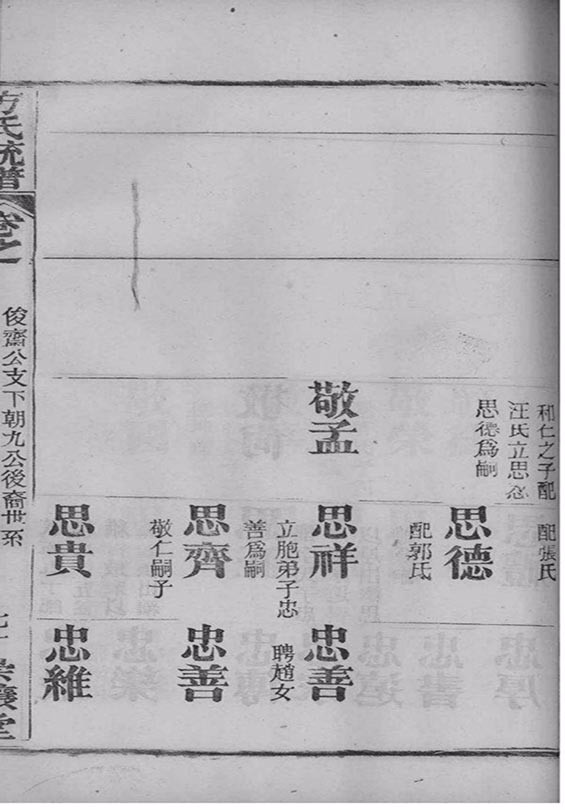 和仁之子配
汪氏立思
思德爲嗣
敬孟
配張氏
思德
配郭氏
思祥
立胞弟子忠
善爲嗣
思齊
敬仁嗣子
思貴
忠善
聘趙女
忠善
忠維
方氏統譜
卷之
俊齋公支下朝九公後裔世系
堂